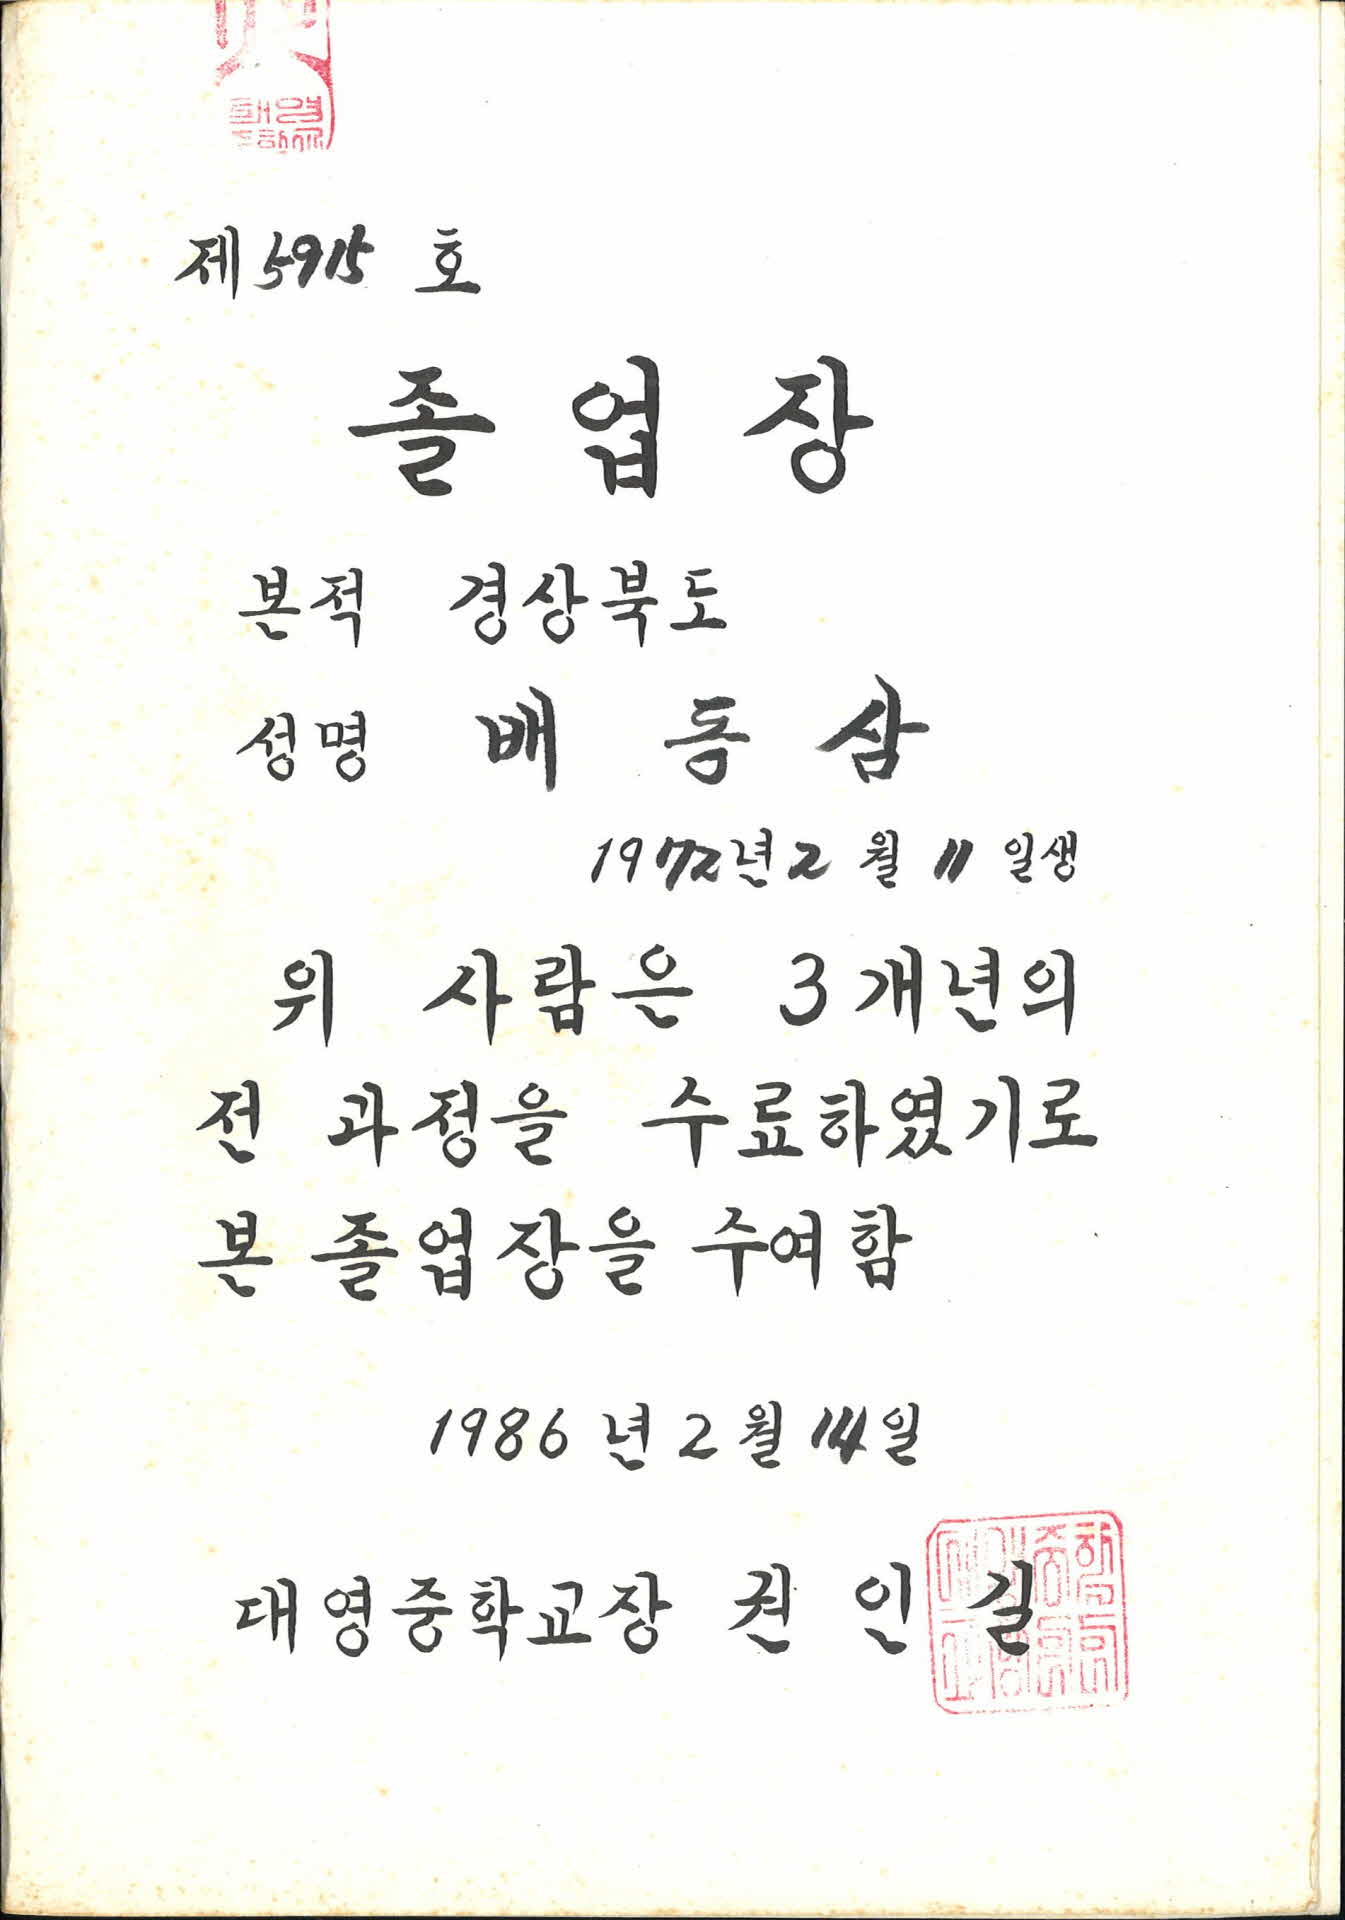 제 5915 호
졸업장
본적 경상북도
성명 배동삼
1972년 2월 11일생
위 사람은 3개년의
전 과정을 수료하였기로
본 졸업장을 수여함
1986년 2월 14일
대영중학교장 권인길